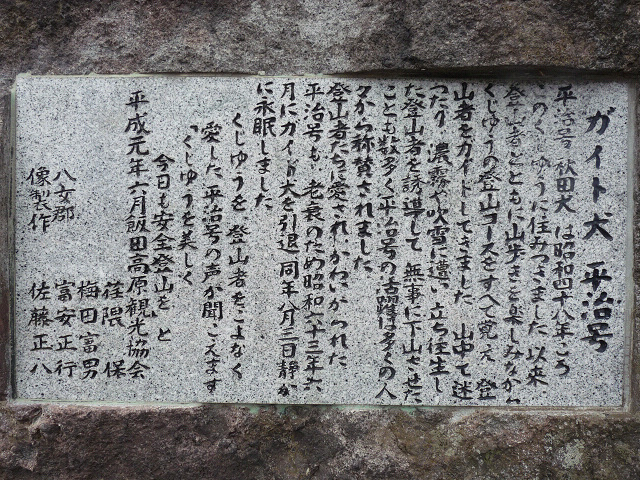 ガイド犬 平治号
平治号(秋田犬)は昭和四十八年ころ
このくじゅうに住みつきました 以来、
登山者とともに山歩きを楽しみながら
くじゅうの登山コースをすべて覚え 登
山者をガイドしてきました 山中で迷
ったり 濃霧や吹雪に遭い 立ち往生し
た登山者を誘導して 無事に下山させた
ことも数多く平治号の活躍は多くの人
々から称賛されました
登山者たちに愛され、かわいがられた
平治号も、老衰のため昭和六十三年六
月にガイド犬を引退 同年八月三日静か
に永眠しました
くじゅうを 登山者をこよなく
愛した 平治号の声が聞こえます
「くじゅうを美しく
今日も安全登山を」と
平成元年六月飯田高原観光協会
荏隈 保
梅田富男
八女郡 富安正行
像製作 佐藤正八